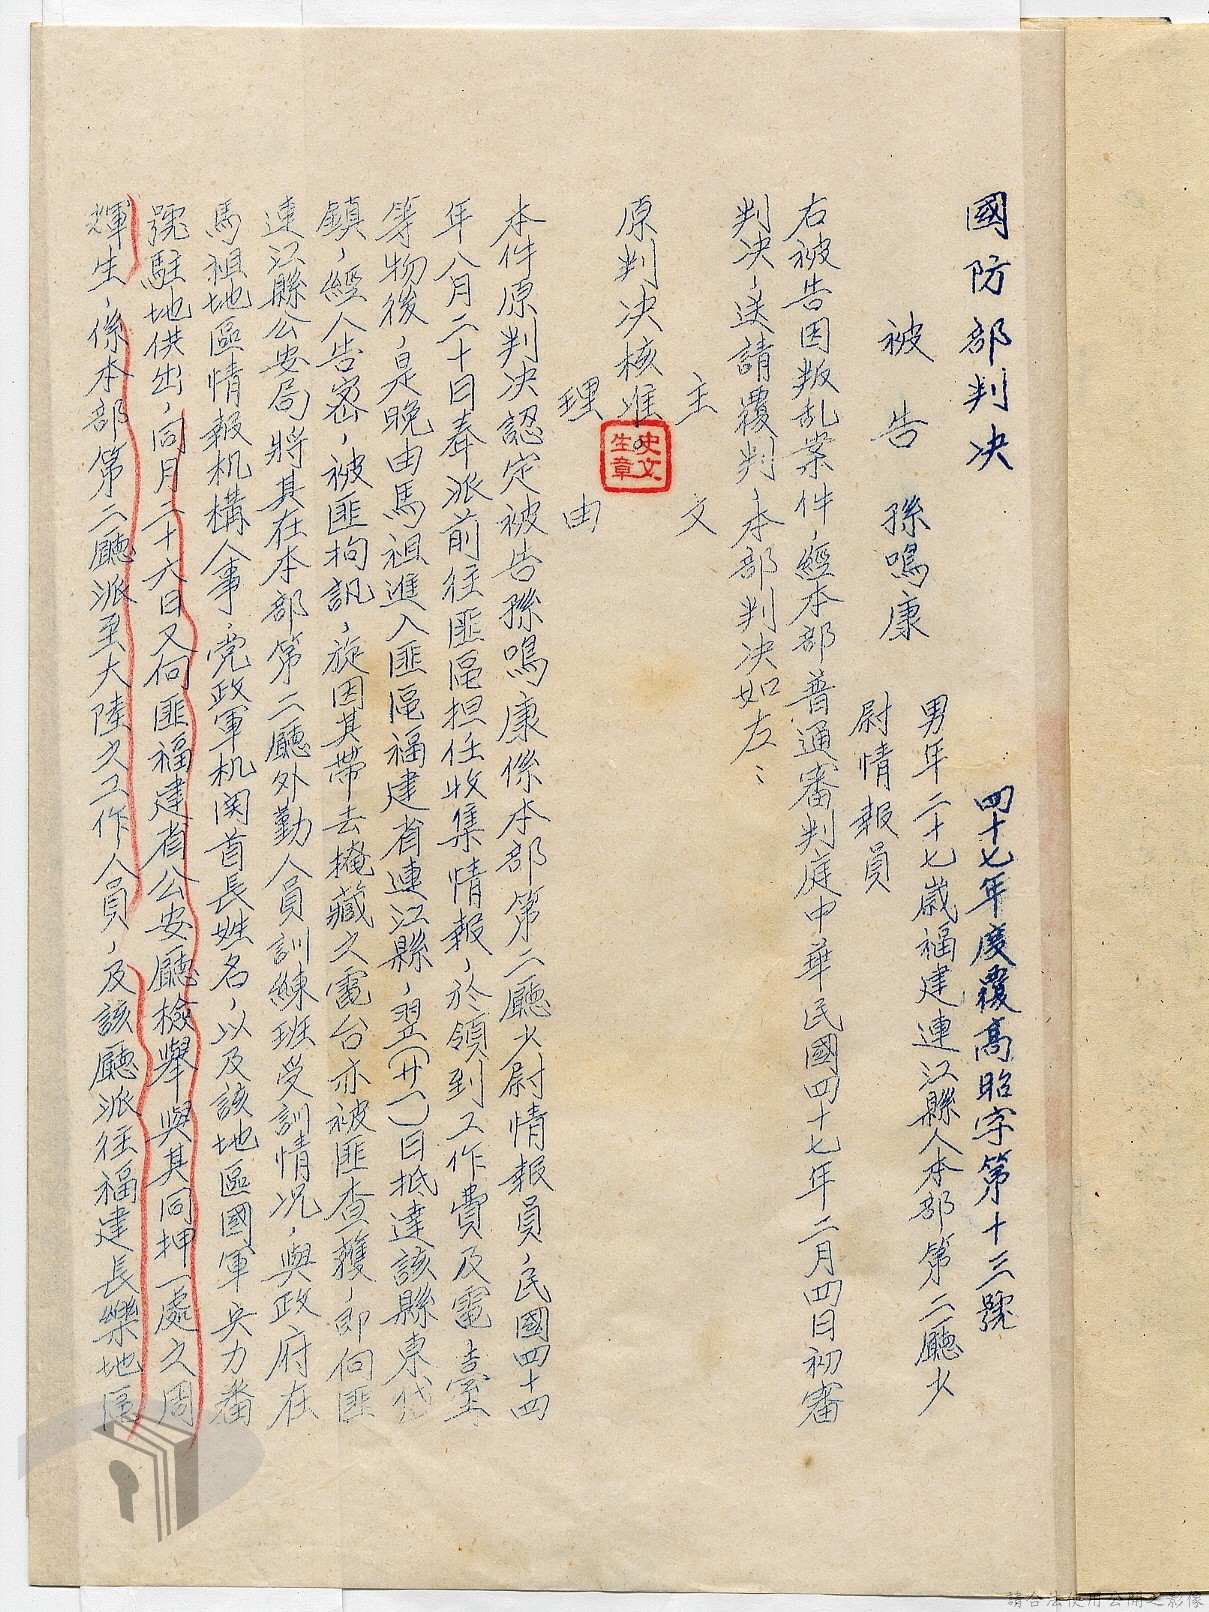 國防部判决
四十七年度覆高昭字第十三號
被告 孫鳴康
男年二十七歲福建連江縣人本部第二廳少
尉情報員
右被告因叛乱案件，經本部普通審判庭中華民國四十七年二月四日初審
判决，送請覆判，本部判决如左：
主文
原判决核准。
史文
生章
理由
本件原判决認定被告孫鳴康係本部第二廳少尉情報員，民國四十四
年八月二十日奉派前往匪區担任收集情報，於領到工作費及電臺
等物後，是晚由馬祖進入匪區福建省連江縣，翌（廿一）日抵達該縣東岱
鎮，經人告密，被匪拘訊，旋因其帶去掩藏之電台亦被匪查獲，即向匪
連江縣公安局將其在本部第二廳外勤人員訓練班受訓情况，與政府在
馬祖地區情報机構人事，党政軍机関首長姓名，以及該地區國軍兵力番
號駐地供出，同月二十六日又向匪福建省公安廳檢舉與其同押一處之周
輝生，係本部第二廳派至大陸之工作人員，及該廳派往福建長樂地區
請合法使用公開之影像